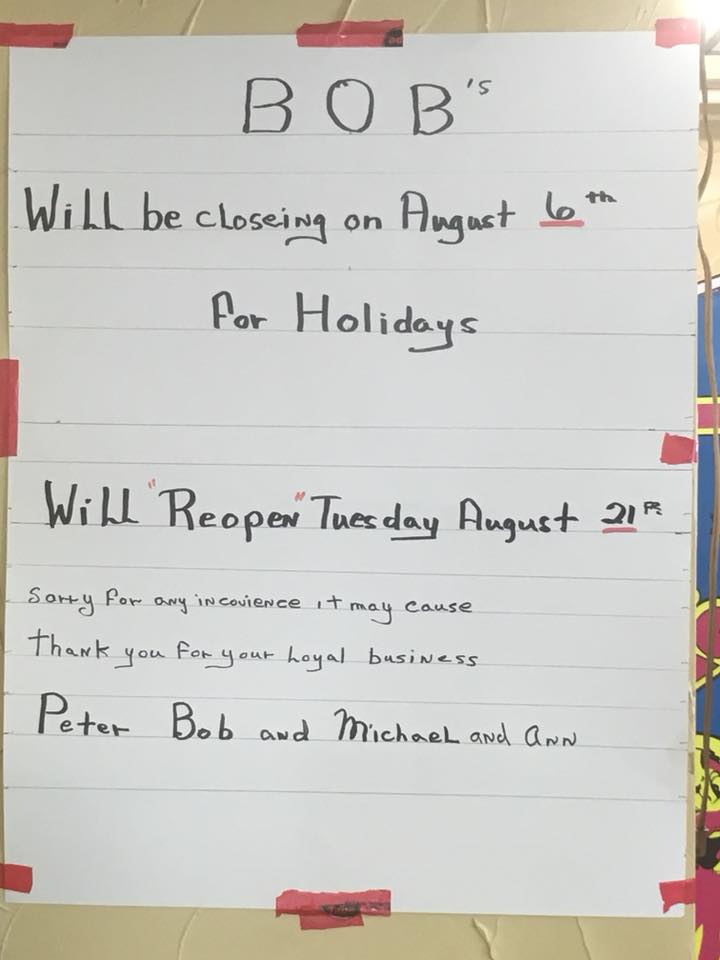 BOB's
Will be closeing on August 6th
For Holidays
Will "Reopen" Tuesday August 21
Sorry for any incovience it may cause
thank you for your Loyal business
Peter Bob and Michael and Ann